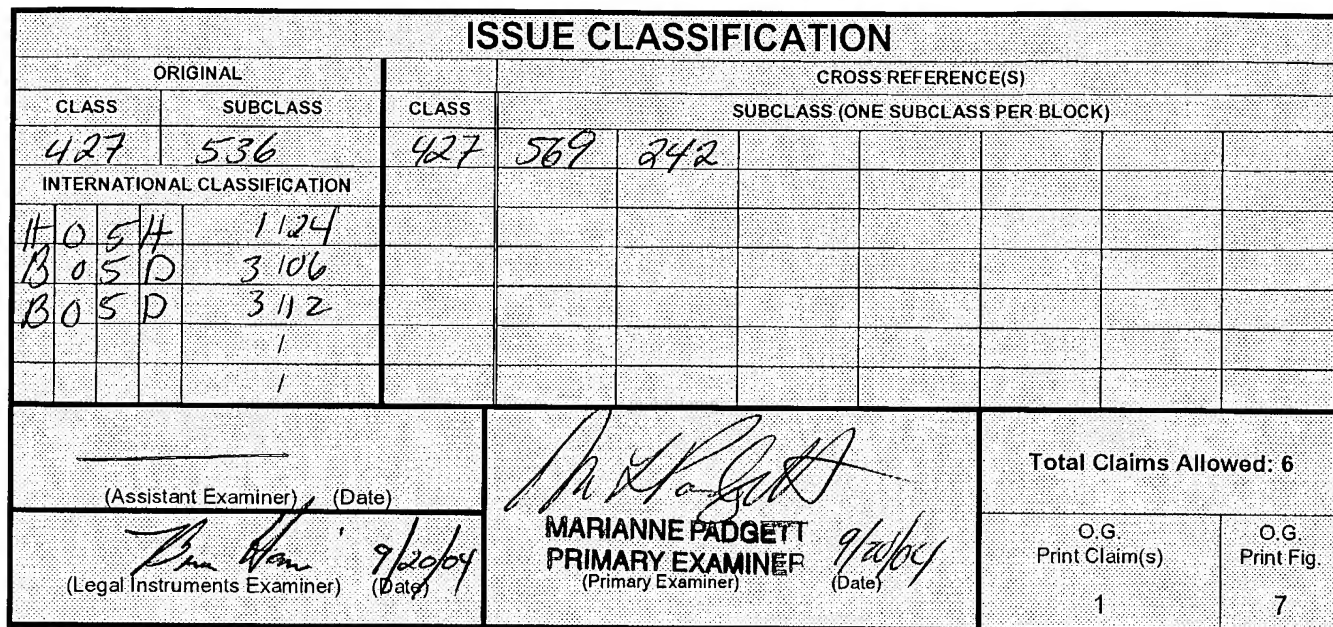 ISSUE CLASSIFICATION
ORIGINAL CROSS REFERENCE(S)
CLASS SUBCLASS CLASS SUBCLASS (ONE SUBCLASS PER BLOCK)
427 536 427 569 242
INTERNATIONAL CLASSIFICATION
H 0 5 H 1 / 24
B 0 5 D 3 / 06
B 0 5 D 3 / 12
/
/
(Assistant Examiner) (Date)
Total Claims Allowed: 6
MARIANNE PADGETT
PRIMARY EXAMINER
(Primary Examiner) (Date)
9/20/04
(Legal Instruments Examiner) (Date)
O.G. Print Claim(s)
1
O.G. Print Fig.
7